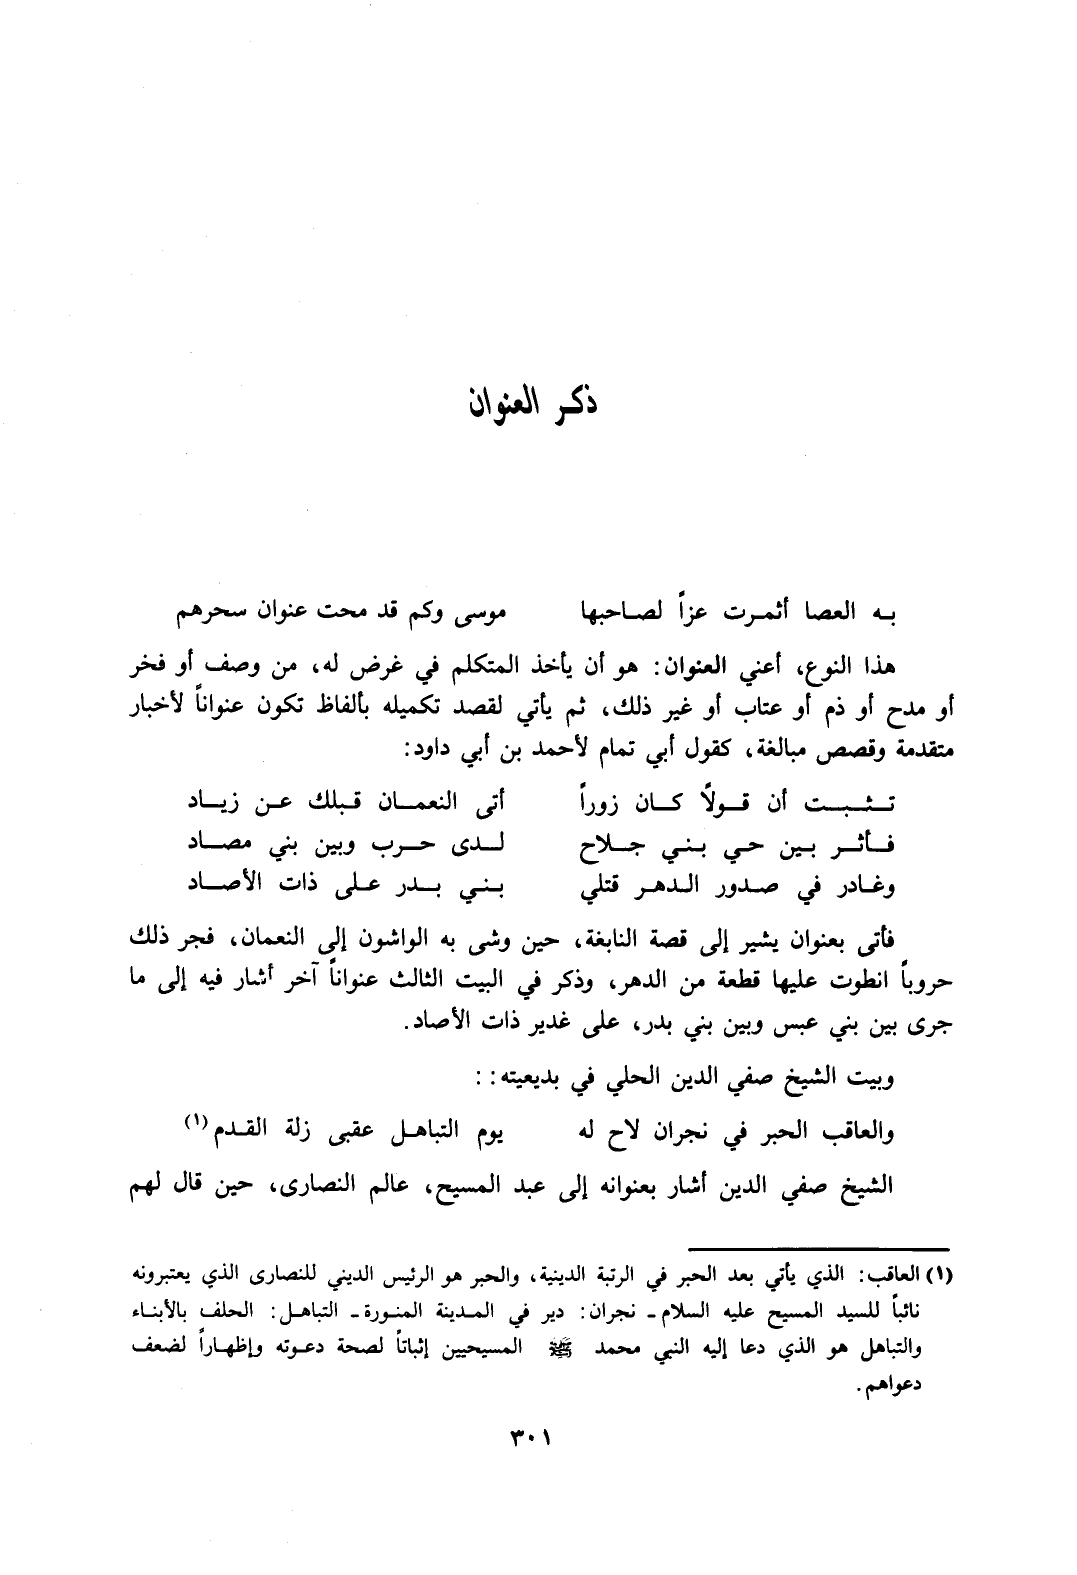 ذكر العنوان
به العصا أثمرت عزاً لصاحبها موسى وكم قد محت عنوان سحرهم
هذا النوع، أعني العنوان: هو أن يأخذ المتكلم في غرض له، من وصف أو فخر
أو مدح أو ذم أو عتاب أو غير ذلك، ثم يأتي لقصد تكميله بألفاظ تكون عنواناً لأخبار
متقدمة وقصص مبالغة، كقول أبي تمام لأحمد بن أبي داود:
تثبت أن قولاً كان زوراً أتى النعمان قبلك عن زياد
فأثر بين حي بني جلاح لدى حرب وبين بني مصاد
وغادر في صدور الدهر قتلي بني بدر على ذات الأصاد
فأتى بعنوان يشير إلى قصة النابغة، حين وشى به الواشون إلى النعمان، فجر ذلك
حروباً انطوت عليها قطعة من الدهر، وذكر في البيت الثالث عنواناً آخر أشار فيه إلى ما
جرى بين بني عبس وبين بني بدر، على غدير ذات الأصاد.
وبيت الشيخ صفي الدين الحلي في بديعيته: :
والعاقب الحبر في نجران لاح له يوم التباهل عقبى زلة القدم(١)
الشيخ صفي الدين أشار بعنوانه إلى عبد المسيح، عالم النصارى، حين قال لهم
(١) العاقب: الذي يأتي بعد الحبر في الرتبة الدينية، والحبر هو الرئيس الديني للنصارى الذي يعتبرونه
نائباً للسيد المسيح عليه السلام ـ نجران: دير في المدينة المنورة ـ التباهل: الحلف بالأبناء
والتباهل هو الذي دعا إليه النبي محمد ﷺ المسيحيين إثباتاً لصحة دعوته وإظهاراً لضعف
دعواهم.
٣٠١